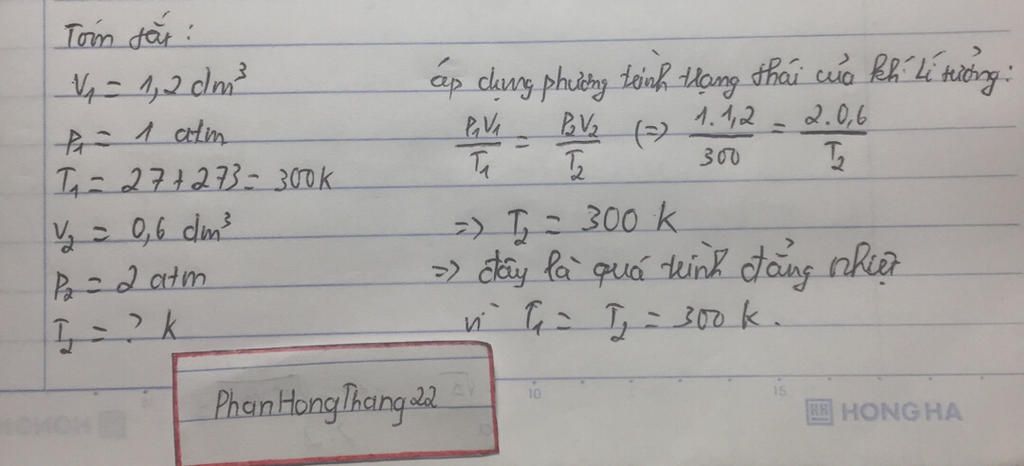 Tóm tắt:
V₁ = 1,2 dm³
P₁ = 1 atm
T₁ = 27+273 = 300k
V₂ = 0,6 dm³
P₂ = 2 atm
T₂ = ? k
áp dụng phương trình trạng thái của khí lí tưởng:
P₁V₁/T₁ = P₂V₂/T₂ (=) 1.1,2/300 = 2.0,6/T₂
=> T₂ = 300 k
=> đây là quá trình đẳng nhiệt
vì T₁ = T₂ = 300 k.
PhanHongThang22
10
15
HH HONG HA